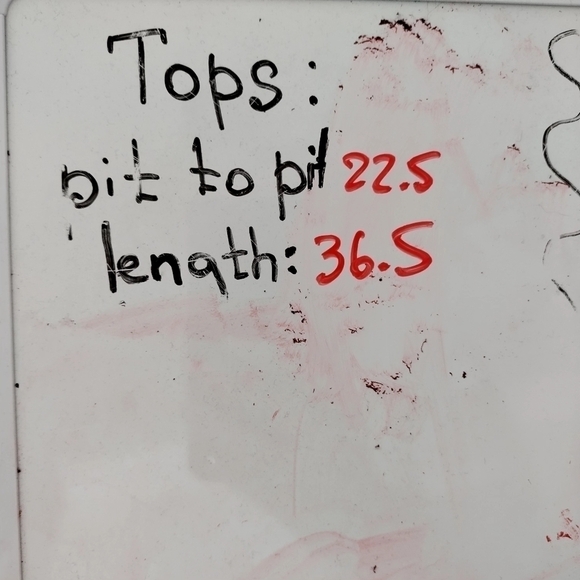 Tops:
pit to pit 22.5
length: 36.5